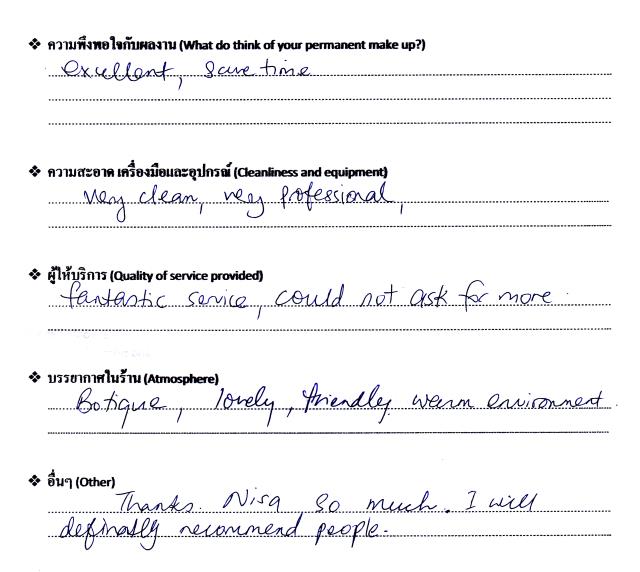 ❖ ความพึงพอใจกับผลงาน (What do think of your permanent make up?)
excellent, save time
❖ ความสะอาด เครื่องมือและอุปกรณ์ (Cleanliness and equipment)
very clean, very professional,
❖ ผู้ให้บริการ (Quality of service provided)
fantastic service, could not ask for more.
❖ บรรยากาศในร้าน (Atmosphere)
Botique, lovely, friendly warm environment.
❖ อื่นๆ (Other)
Thanks. Nisa so much. I will
definatly recommend people.